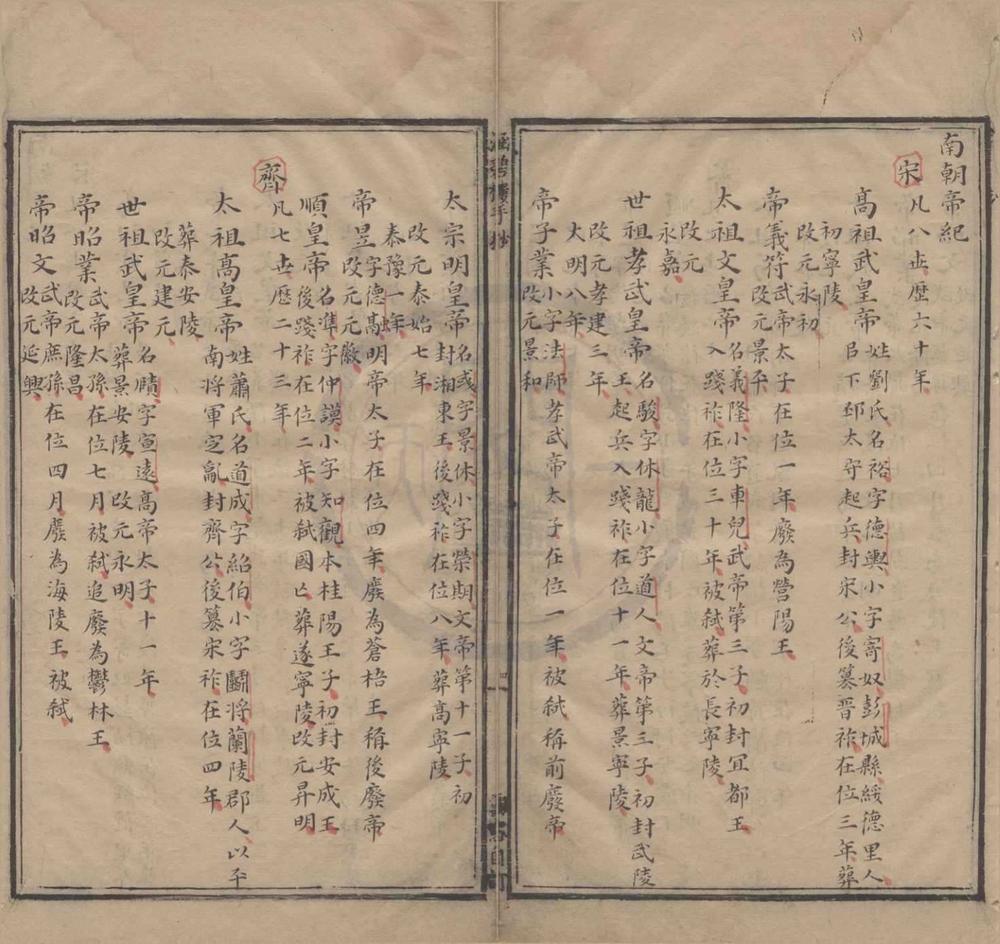 南朝帝紀
宋凡八世歴六十年
髙祖武皇帝姓劉氏名裕字德輿小字寄奴彭城縣綏德里人
㠯下邳太守起兵封宋公後簒晉祚在位三年葬
初寧陵
改元永初
帝義符武帝太子在位一年廢為營陽王
改元景平
太祖文皇帝名義隆小字車兒武帝第三子初封宜都王
入踐祚在位三十年被弑葬於長寧陵
改元
永嘉
世祖孝武皇帝名駿字休龍小字道人文帝第三子初封武陵
王起兵入踐祚在位十一年葬景寧陵
改元孝建三年
大明八年
帝子業小字法師孝武帝太子在位一年被弑稱前廢帝
改元景和
涵碧樓手抄
太宗明皇帝名彧字景休小字榮期文帝第十一子初
封湘東王後踐祚在位八年葬髙寧陵
改元泰始七年
泰豫一年
帝昱字德融明帝太子在位四年廢為蒼梧王稱後廢帝
改元元徽
順皇帝名準字仲謨小字知觀本桂陽王子初封安成王
後踐祚在位二年被弑國亡葬遂寧陵改元昇明
齊凡七世歴二十三年
太祖髙皇帝姓蕭氏名道成字紹伯小字鬭將蘭陵郡人以平
南將軍定亂封齊公後簒宋祚在位四年
葬泰安陵
改元建元
世祖武皇帝名賾字宣遠髙帝太子十一年
葬景安陵 改元永明
帝昭業武帝太孫在位七月被弑追廢為鬱林王
改元隆昌
帝昭文武帝庶孫在位四月廢為海陵王被弑
改元延興